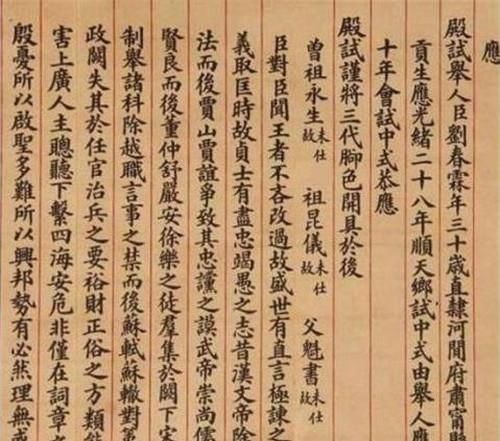 應
殿試舉人臣劉春霖年三十歲直隸河間府肅甯
貢生應光緒二十八年順天鄉試中式由舉人應
十年會試中式恭應
殿試謹將三代腳色開具於後
曾祖永生未仕故 祖昆儀未仕故 父魁書未仕故
臣對臣聞王者不吝改過故盛世有直言極諫之
義取匡時故貞士有盡忠竭愚之志昔漢文帝除
法而後賈山賈誼爭致其忠讜之謨武帝崇尚儒
賢良而後董仲舒嚴安徐樂之徒羣集於闕下宋
制舉諸科除越職言事之禁而後蘇軾蘇轍對
政闕失其於任官治兵之要裕財正俗之方類能
害上廣人主聰聽下繫四海安危非僅在詞章
殷憂所以啟聖多難所以興邦勢有必然理無或